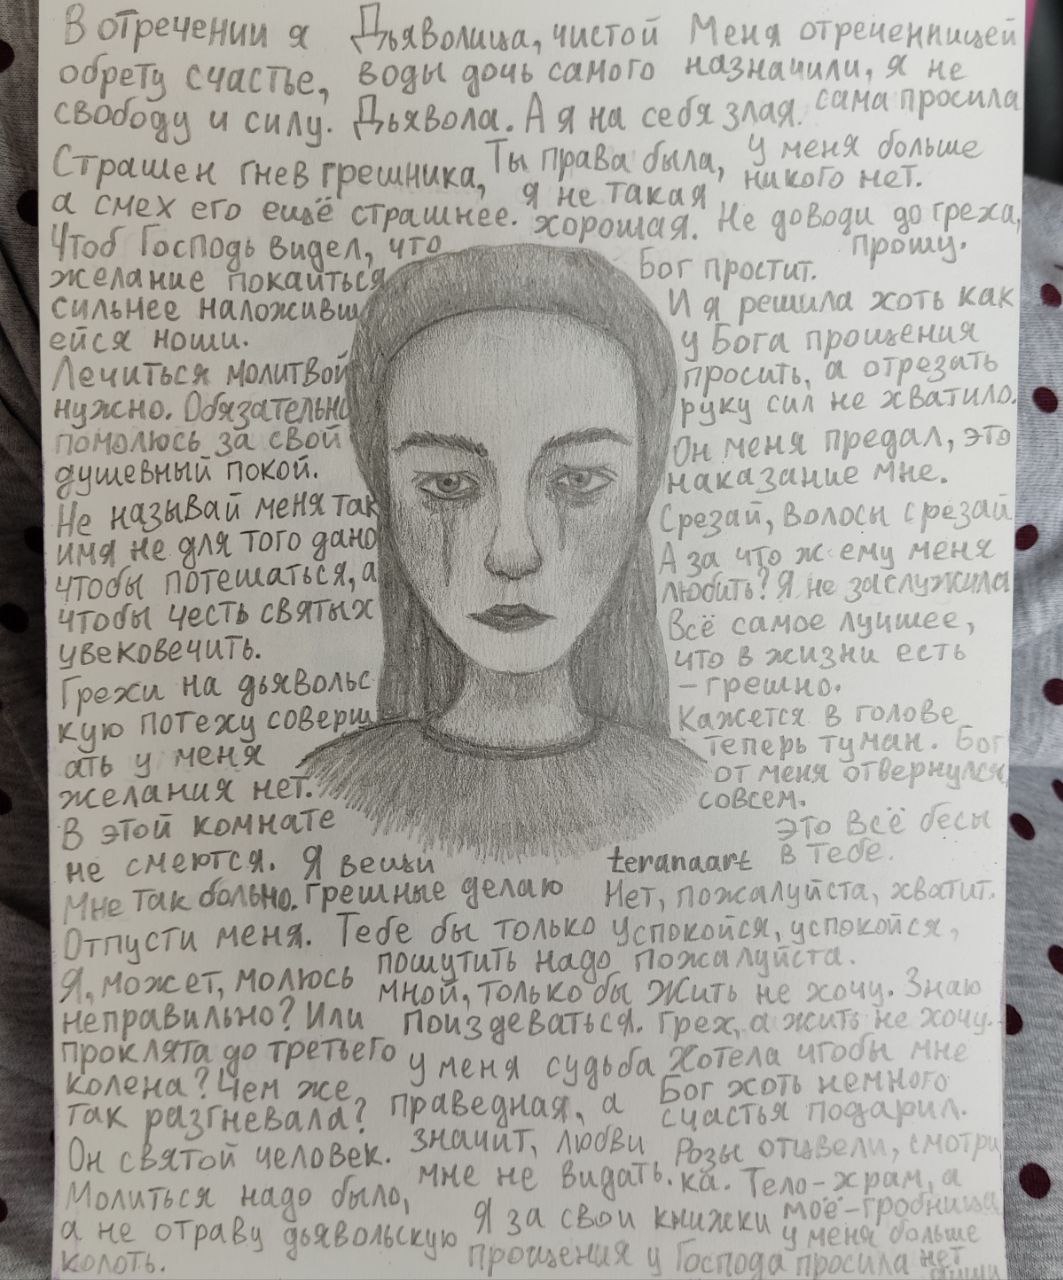 В отречении я
обрету счастье,
свободу и силу.
Дьяволица, чистой
воды дочь самого
Дьявола. А я на себя злая.
Меня отреченницей
назначили, я не
сама просила
Страшен гнев грешника,
а смех его ещё страшнее.
Ты права была,
я не такая
хорошая.
у меня больше
никого нет.
Не доводи до греха,
прошу.
Чтоб Господь видел, что
желание покаиться
сильнее наложивш
ейся ноши.
Лечиться молитвой
нужно. Обязательно
помолюсь за свой
душевный покой.
Не называй меня так
имя не для того дано
чтобы потешаться, а
чтобы честь святых
увековечить.
Грехи на дьявольс
кую потеху соверш
ать у меня
желания нет.
В этой комнате
не смеются. Я вещи
грешные делаю
Бог простит.
И я решила хоть как
у Бога прощения
просить, а отрезать
руку сил не хватило.
Он меня предал, это
наказание мне.
Срезай, волосы срезай
А за что ж ему меня
любить? Я не заслужила
Всё самое лучшее,
что в жизни есть
- грешно.
Кажется в голове
теперь туман. Бог
от меня отвернулся
совсем.
Это всё бесы
в тебе.
teranaart
Мне так больно.
Отпусти меня.
Я, может, молюсь
неправильно? Или
проклята до третьего
колена? Чем же
так разгневала?
Он святой человек.
Молиться надо было,
а не отраву дьявольскую
колоть.
Тебе бы только
пошутить надо
мной, только бы
поиздеваться.
у меня судьба
праведная, а
значит, любви
мне не видать.
Я за свои книжки
прощения у Господа просила
Нет, пожалуйста, хватит.
Успокойся, успокойся,
пожалуйста.
Жить не хочу. Знаю
грех, а жить не хочу.
Хотела чтобы мне
Бог хоть немного
счастья подарил.
Розы отцвели, смотри
ка. Тело-храм, а
моё-гробница
у меня больше
нет